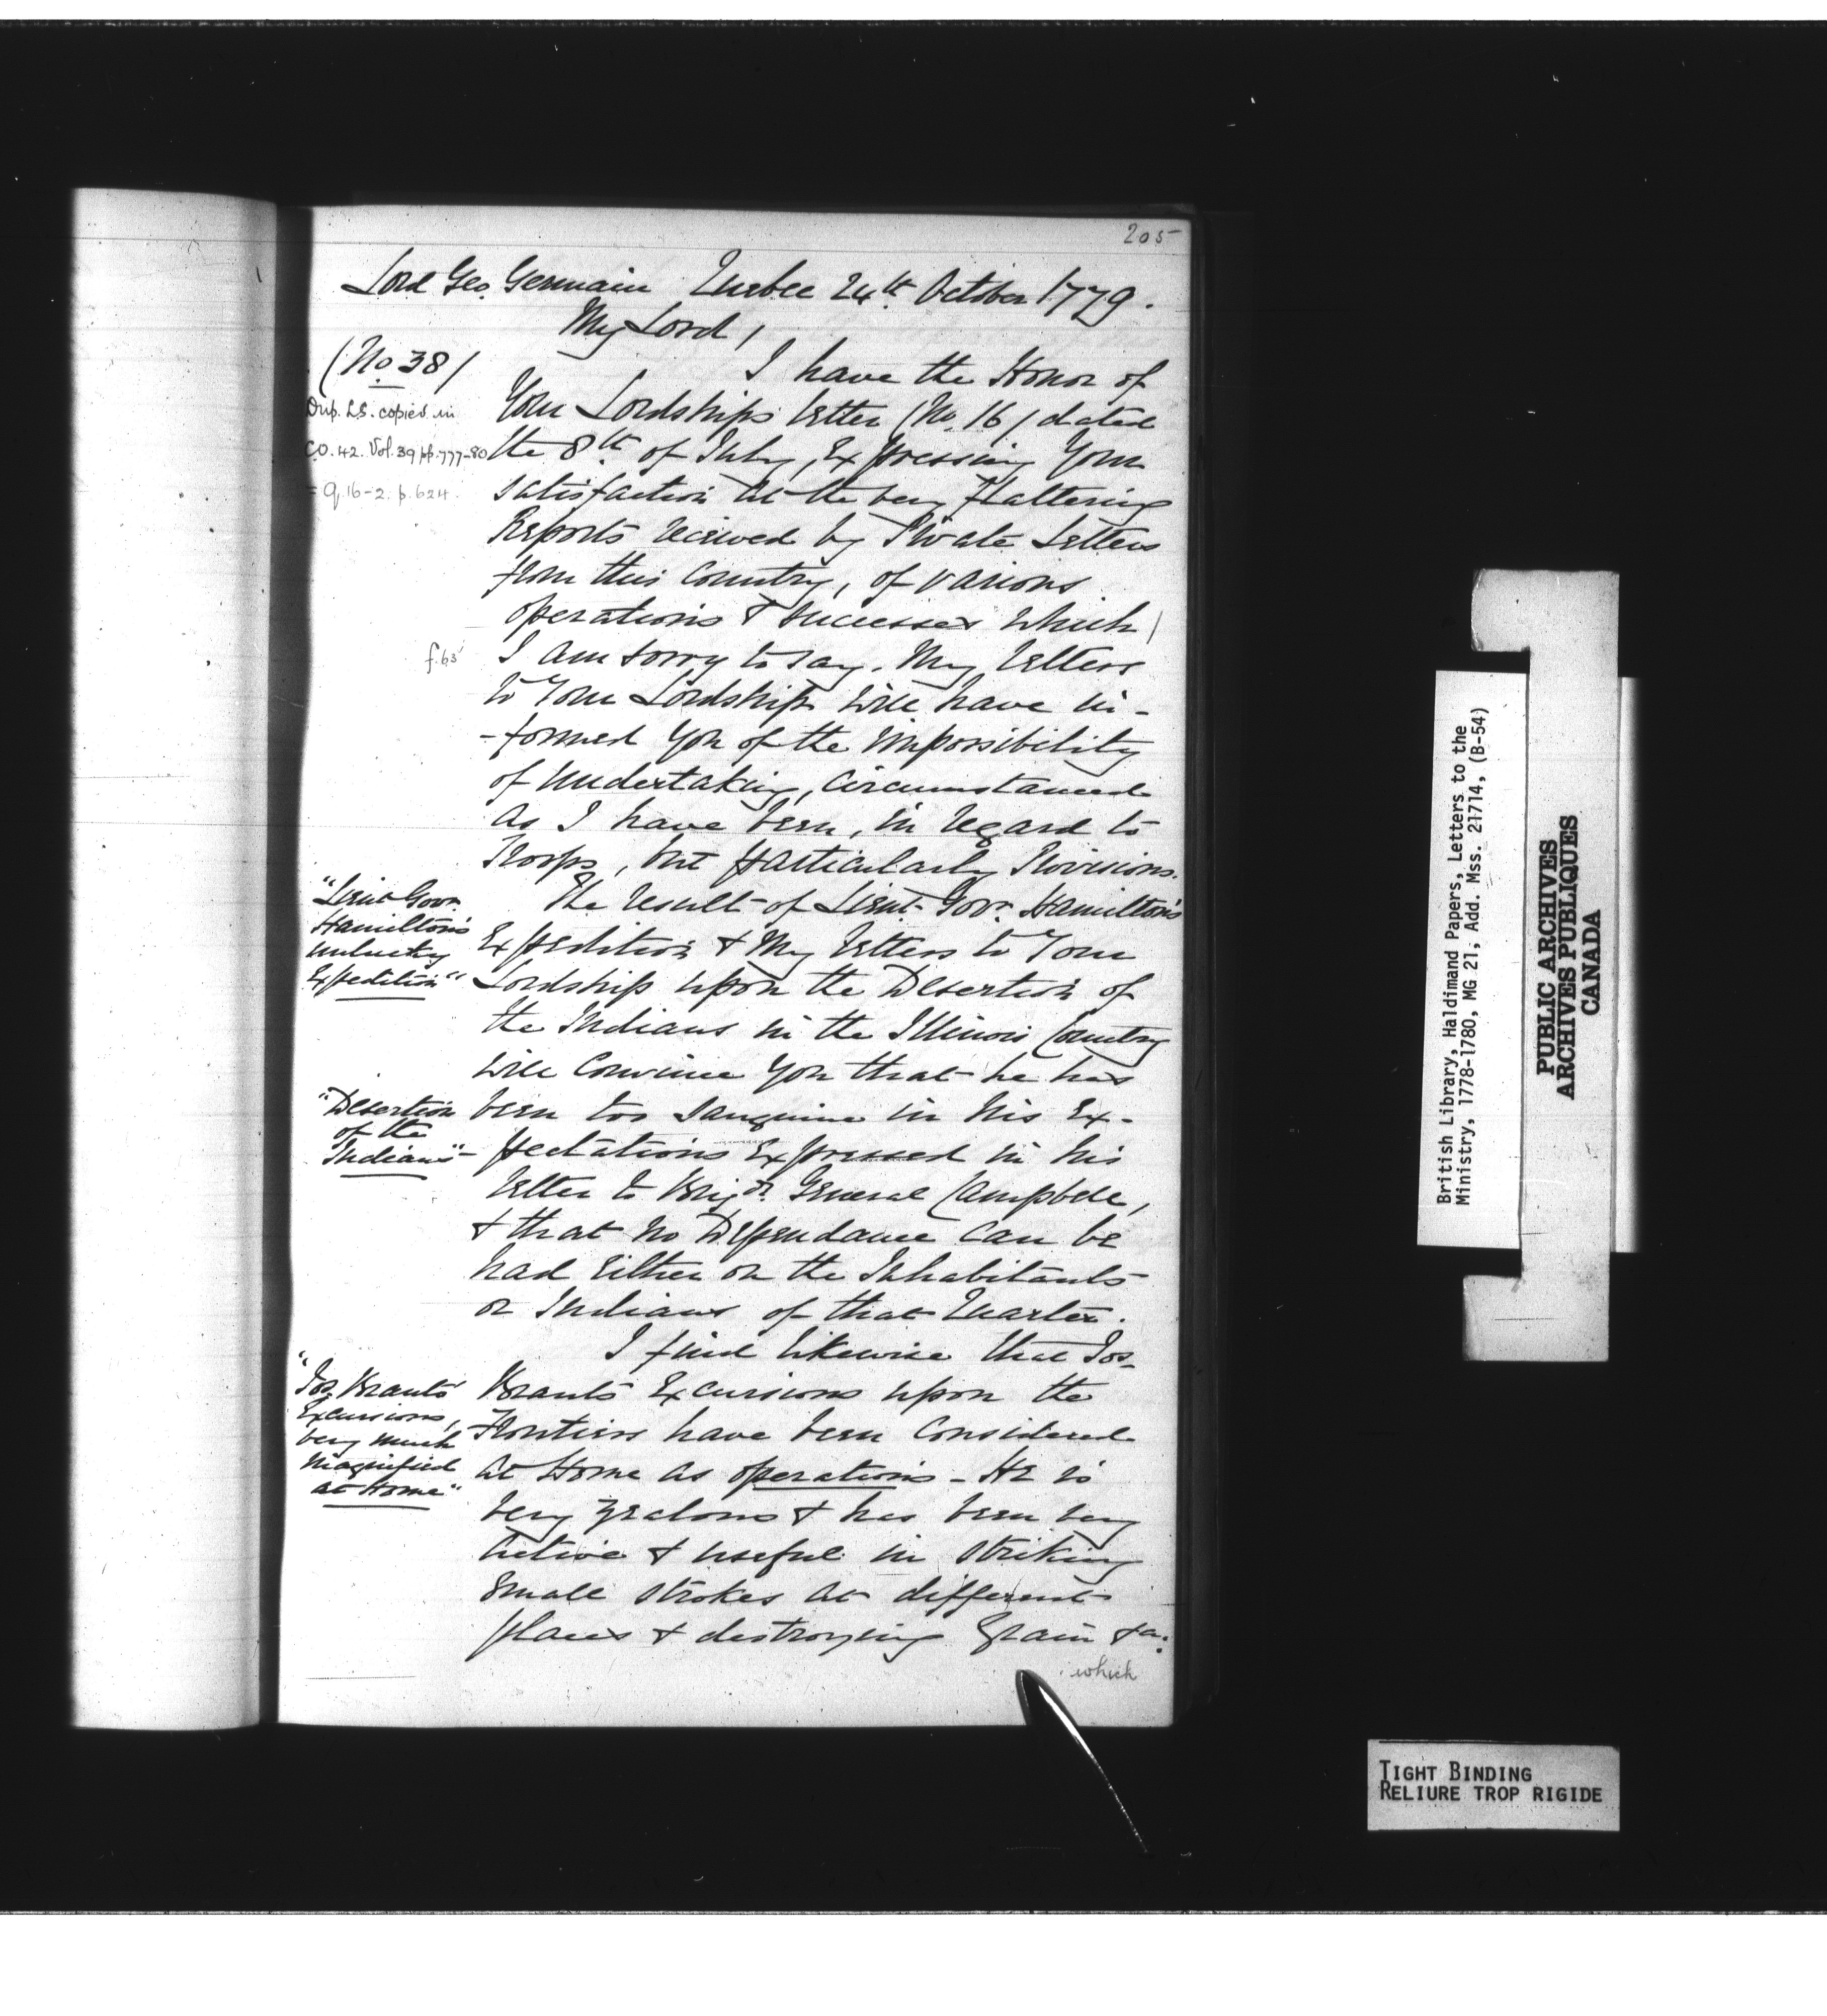 205
Lord Geo. Germain Quebec 24th October 1779.
My Lord,
(No 38)
Dup. L.S. copied in
C.O. 42. Vol. 39 pp. 777-80
= Q. 16-2. p. 624.
I have the Honor of
Your Lordships letter (No. 16) dated
the 8th of July, Expressing Your
satisfaction at the very flattering
Reports recieved by Private Letters
from this Country, of various
operations & successes which
f. 63
I am sorry to say. My letters
to Your Lordship will have in-
-formed You of the impossibility
of undertaking, circumstanced
as I have been, in regard to
Troops, but particularly Provisions.
"Lieut Govr.
Hamilton's
unlucky
Expedition"
The result of Lieut. Govr. Hamilton's
Expedition & My letters to Your
Lordship upon the Desertion of
the Indians in the Illinois Country
will Convince You that he has
"Desertion
of the
Indians"
been too sanguine in his Ex-
pectations Expressed in his
letter to Brigr. General Campbell,
& that no Dependance can be
had Either on the Inhabitants
or Indians of that Quarter.
I find likewise that Jos.
"Jos. Brant's
Excursions,
very much
magnified
at Home"
Brants Excursions upon the
Frontiers have been Considered
at Home as operations - He is
very zealous & has been very
active & useful in striking
small strokes at different
places & destroying Grain &a.
which
British Library, Haldimand Papers, Letters to the
Ministry, 1778-1780, MG 21, Add. Mss. 21714, (B-54)
PUBLIC ARCHIVES
ARCHIVES PUBLIQUES
CANADA
TIGHT BINDING
RELIURE TROP RIGIDE